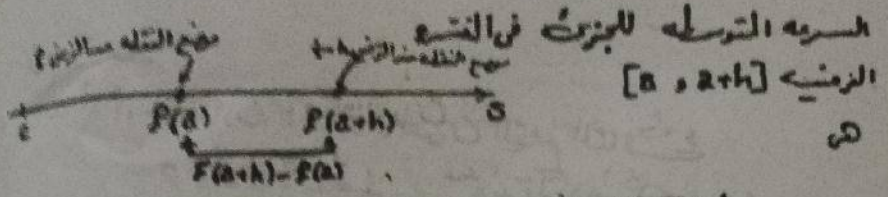 السرعه المتوسطه للجزئ في الفترة
الزمنيه [a , a+h]
هى
موضع النقطه عند الزمن
موضع النقطه عند الزمن
f(a) f(a+h) s
F(a+h)-f(a)